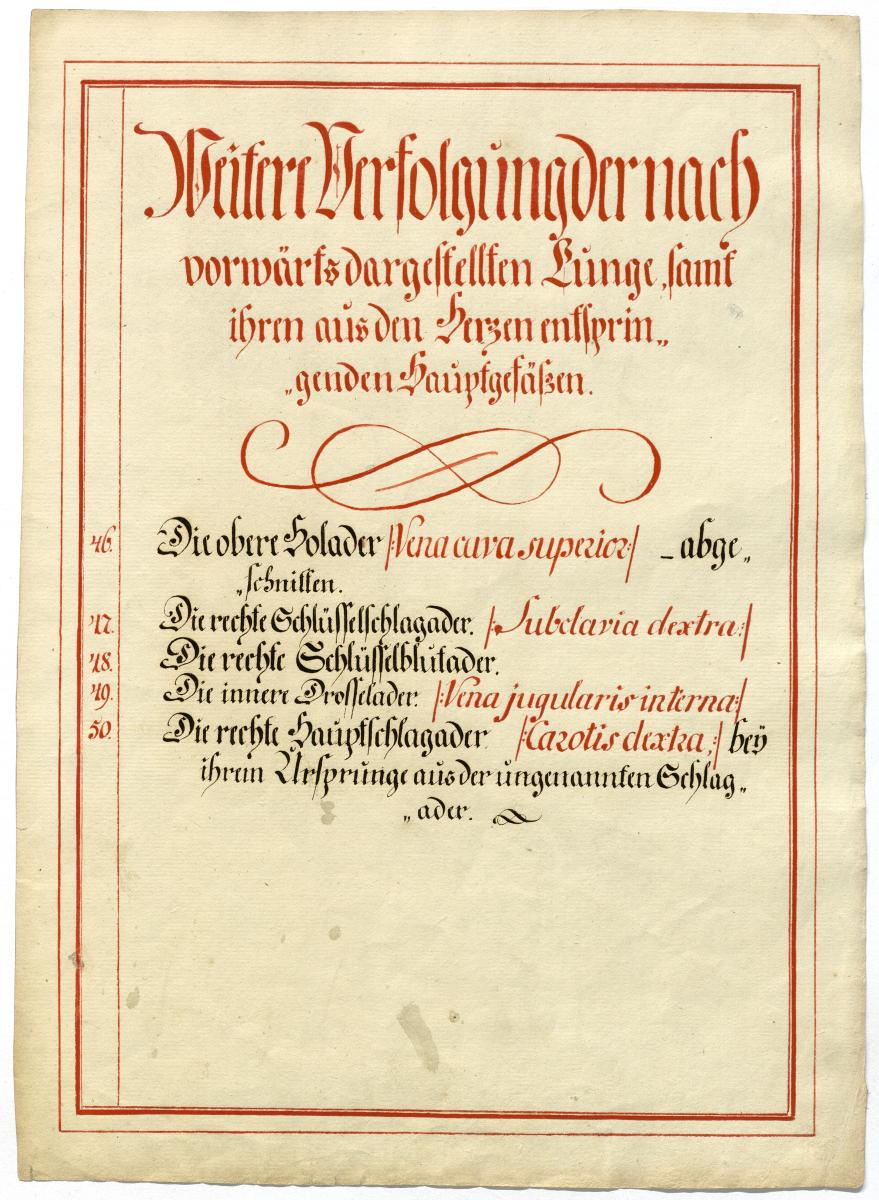 Weitere Verfolgung der nach
vorwärts dargestellten Lunge, samt
ihren aus den Herzen entsprin„
„genden Hauptgefäßen.
46. Die obere Holader /:Vena cava superior:/ – abge„
„schnitten.
47. Die rechte Schlüsselschlagader. /:Subclavia dextra:/
48. Die rechte Schlüsselblutader.
49. Die innere Drosselader. /:Vena jugularis interna:/
50. Die rechte Hauptschlagader /:Carotis dextra,:/ beÿ
ihrem Ursprunge aus der ungenannten Schlag„
„ader.